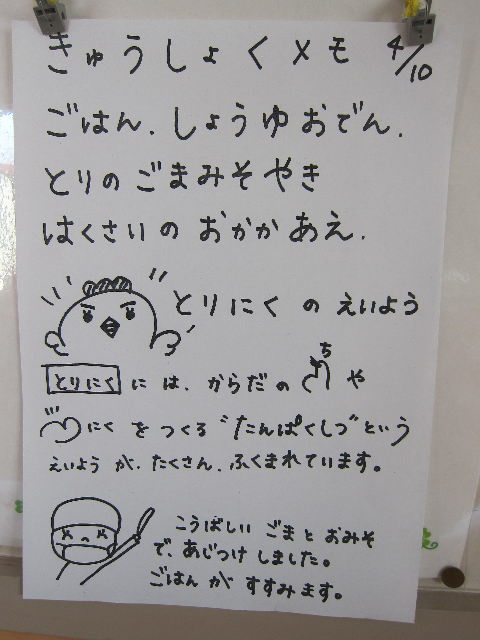 きゅうしょくメモ 4/10
ごはん.しょうゆおでん.
とりのごまみそやき
はくさいのおかかあえ.
とりにくのえいよう
とりにくには、からだのちや
にくをつくる"たんぱくしつ"という
えいようが、たくさん、ふくまれています。
こうばしいごまとおみそ
で、あじつけしました。
ごはんがすすみます。